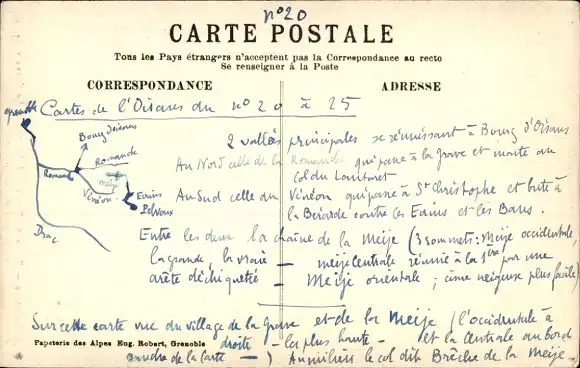 n° 20
CARTE POSTALE
Tous les Pays étrangers n'acceptent pas la Correspondance au recto
Se renseigner à la Poste
CORRESPONDANCE
ADRESSE
Cartes de l'Oisans du n° 20 à 25
Grenoble
Bourg d'Oisans
Romanche
Romanche
Meije
Vénéon
Ecrins
Pelvoux
Drac
2 vallées principales se réunissant à Bourg d'Oisans
Au Nord celle de la Romanche qui passe à la Grave et monte au
col du Lautaret
Au Sud celle du Vénéon qui passe à St Christophe et bute à
la Bérarde contre les Ecrins et les Bans.
Entre les deux la chaîne de la Meije (3 sommets: Meije occidentale
la grande la vraie — meije centrale réunie à la 1ère par une
arête déchiquetée — Meije orientale; cime neigeuse plus facile)
Sur cette carte vue du village de la Grave et de la Meije (l'occidentale à
droite - la plus haute - et la Centrale au bord
gauche de la carte —) Au milieu le col dit Brèche de la Meije
Papeterie des Alpes Eug. Robert, Grenoble